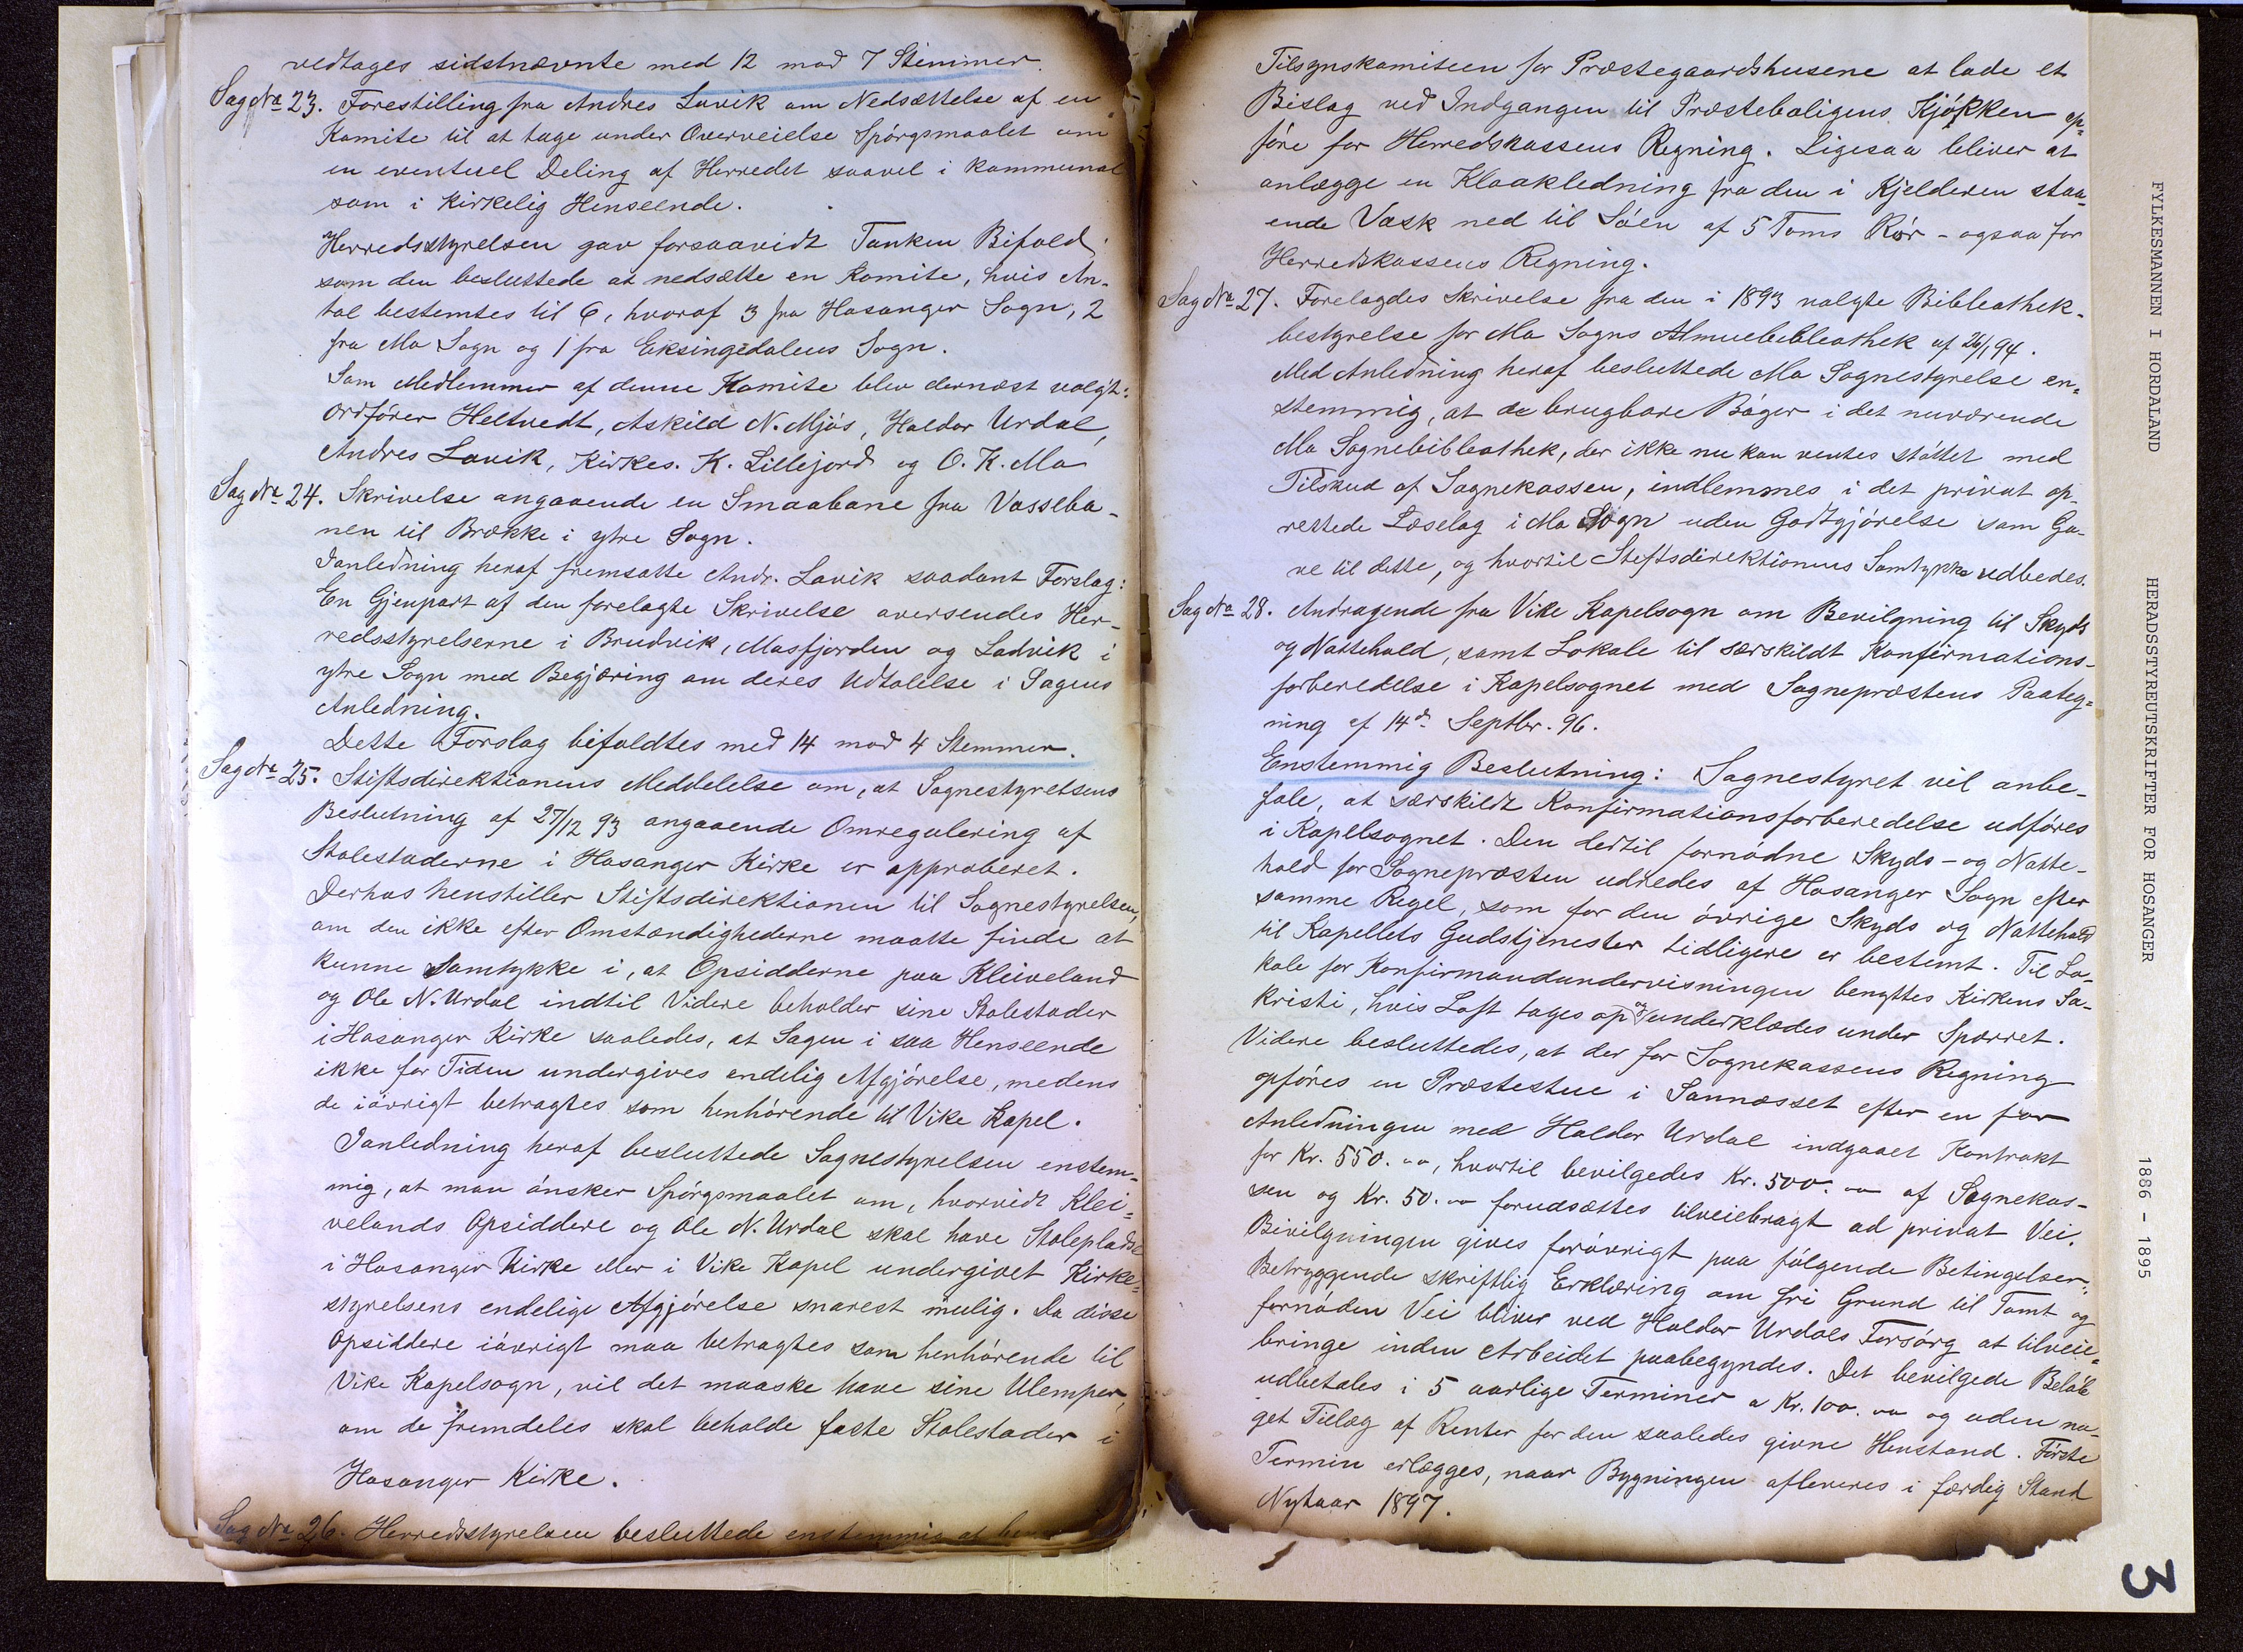 vedtages sidstnævnte med 12 mod 7 Stemmer.
Sag No 23. Forestilling fra Andres Lavik om Nedsættelse af en
Komite til at tage under Overveielse Spørgsmaalet om
en eventuel Deling af Herredet saavel i kommunal
som i kirkelig Henseende.
Herredsstyrelsen gav forsaavidt Tanken Bifald,
som den besluttede at nedsætte en Komite, hvis An-
tal bestemtes til 6, hvoraf 3 fra Hosanger Sogn, 2
fra Mo Sogn og 1 fra Eksingedalens Sogn.
Som Medlemmer af denne Komite blev dernæst valgt:
Ordfører Heltvedt, Askild N. Mjøs, Haldor Urdal,
Andres Lavik, Kirkes. K. Lillejord og O. K. Mo
Sag No 24. Skrivelse angaaende en Smaabane fra Vosseba-
nen til Brække i ytre Sogn.
Ianledning heraf fremsatte Andr. Lavik saadant Forslag:
En Gjenpart af den forelagte Skrivelse oversendes Her-
redsstyrelserne i Brudvik, Masfjorden og Ladvik i
ytre Sogn med Begjæring om deres Udtalelse i Sagens
Anledning.
Dette Forslag bifaldtes med 14 mod 4 Stemmer.
Sag No 25. Stiftsdirektionens Meddelelse om, at Sognestyrelsens
Beslutning af 27/12 93 angaaende Omregulering af
Stolestaderne i Hosanger Kirke er approberet.
Derhos henstiller Stiftsdirektionen til Sognestyrelsen,
om den ikke efter Omstændighederne maatte finde at
kunne Samtykke i, at Opsidderne paa Kleiveland
og Ole N. Urdal indtil Videre beholder sine Stolestader
i Hosanger Kirke saaledes, at Sagen i saa Henseende
ikke for Tiden undergives endelig Afgjørelse, medens
de iøvrigt betragtes som henhørende til Vike Kapel.
Ianledning heraf besluttede Sognestyrelsen enstem-
mig, at man ønsker Spørgsmaalet om, hvorvidt Klei-
velands Opsiddere og Ole N. Urdal skal have Stoleplads
i Hosanger Kirke eller i Vike Kapel undergivet Kirke-
styrelsens endelige Afgjørelse snarest mulig. Da disse
Opsiddere iøvrigt maa betragtes som henhørende til
Vike Kapelsogn, vil det maaske have sine Ulemper,
om de fremdeles skal beholde faste Stolestader i
Hosanger Kirke.
Sag No 26. Herredsstyrelsen besluttede enstemmig at
Tilsynskomiteen for Præstegaardshusene at lade et
Bislag ved Indgangen til Præsteboligens Kjøkken op-
føre for Herredskassens Regning. Ligesaa bliver at
anlægge en Kloakledning fra den i Kjelderen staa-
ende Vask ned til Søen af 5 Toms Rør - ogsaa for
Herredskassens Regning.
Sag No 27. Forelagdes Skrivelse fra den i 1893 valgte Bibliothek-
bestyrelse for Mo Sogns Almuebibliothek af 26/1 94.
Med Anledning heraf besluttede Mo Sognestyrelse en-
stemmig, at de brugbare Bøger i det nuværende
Mo Sognebibliothek, der ikke nu kan ventes støttet med
Tilskud af Sognekassen, indlemmes i det privat op-
rettede Læselag i Mo Sogn uden Godtgjørelse som Ga-
ve til dette, og hvortil Stiftsdirektionens Samtykke udbedes.
Sag No 28. Andragende fra Vike Kapelsogn om Bevilgning til Skyds
og Nattehold, samt Lokale til særskildt Konfirmations-
forberedelse i Kapelsognet med Sognepræstens Paateg-
ning af 14de Septbr. 96.
Enstemmig Beslutning: Sognestyret vil anbe-
fale, at særskildt Konfirmationsforberedelse udføres
i Kapelsognet. Den dertil fornødne Skyds- og Natte-
hold for Sognepræsten udredes af Hosanger Sogn efter
samme Regel, som for den øvrige Skyds og Nattehold
til Kapellets Gudstjenester tidligere er bestemt. Til Lo-
kale for Konfirmandundervisningen benyttes Kirkens Sa-
kristi, hvis Loft tages op og underklædes under Spærret.
Videre besluttedes, at der for Sognekassens Regning
opføres en Præstestue i Sannæsset efter en for
Anledningen med Haldor Urdal indgaaet Kontrakt
for Kr. 550.00, hvortil bevilgedes Kr. 500.00 af Sognekas-
sen og Kr. 50.00 forudsættes tilveiebragt ad privat Vei.
Bevilgningen gives forøvrigt paa følgende Betingelser:
Betryggende skriftlig Erklæring om fri Grund til Tomt og
fornøden Vei bliver ved Haldor Urdals Forsørg at tilveie-
bringe inden Arbeidet paabegyndes. Det bevilgede Beløb
udbetales i 5 aarlige Terminer a Kr. 100.00 og uden no-
get Tillæg af Renter for den saaledes givne Henstand. Første
Termin erlægges, naar Bygningen afleveres i færdig Stand
Nytaar 1897.
FYLKESMANNEN I HORDALAND HERADSSTYREUTSKRIFTER FOR HOSANGER 1886 - 1895
3